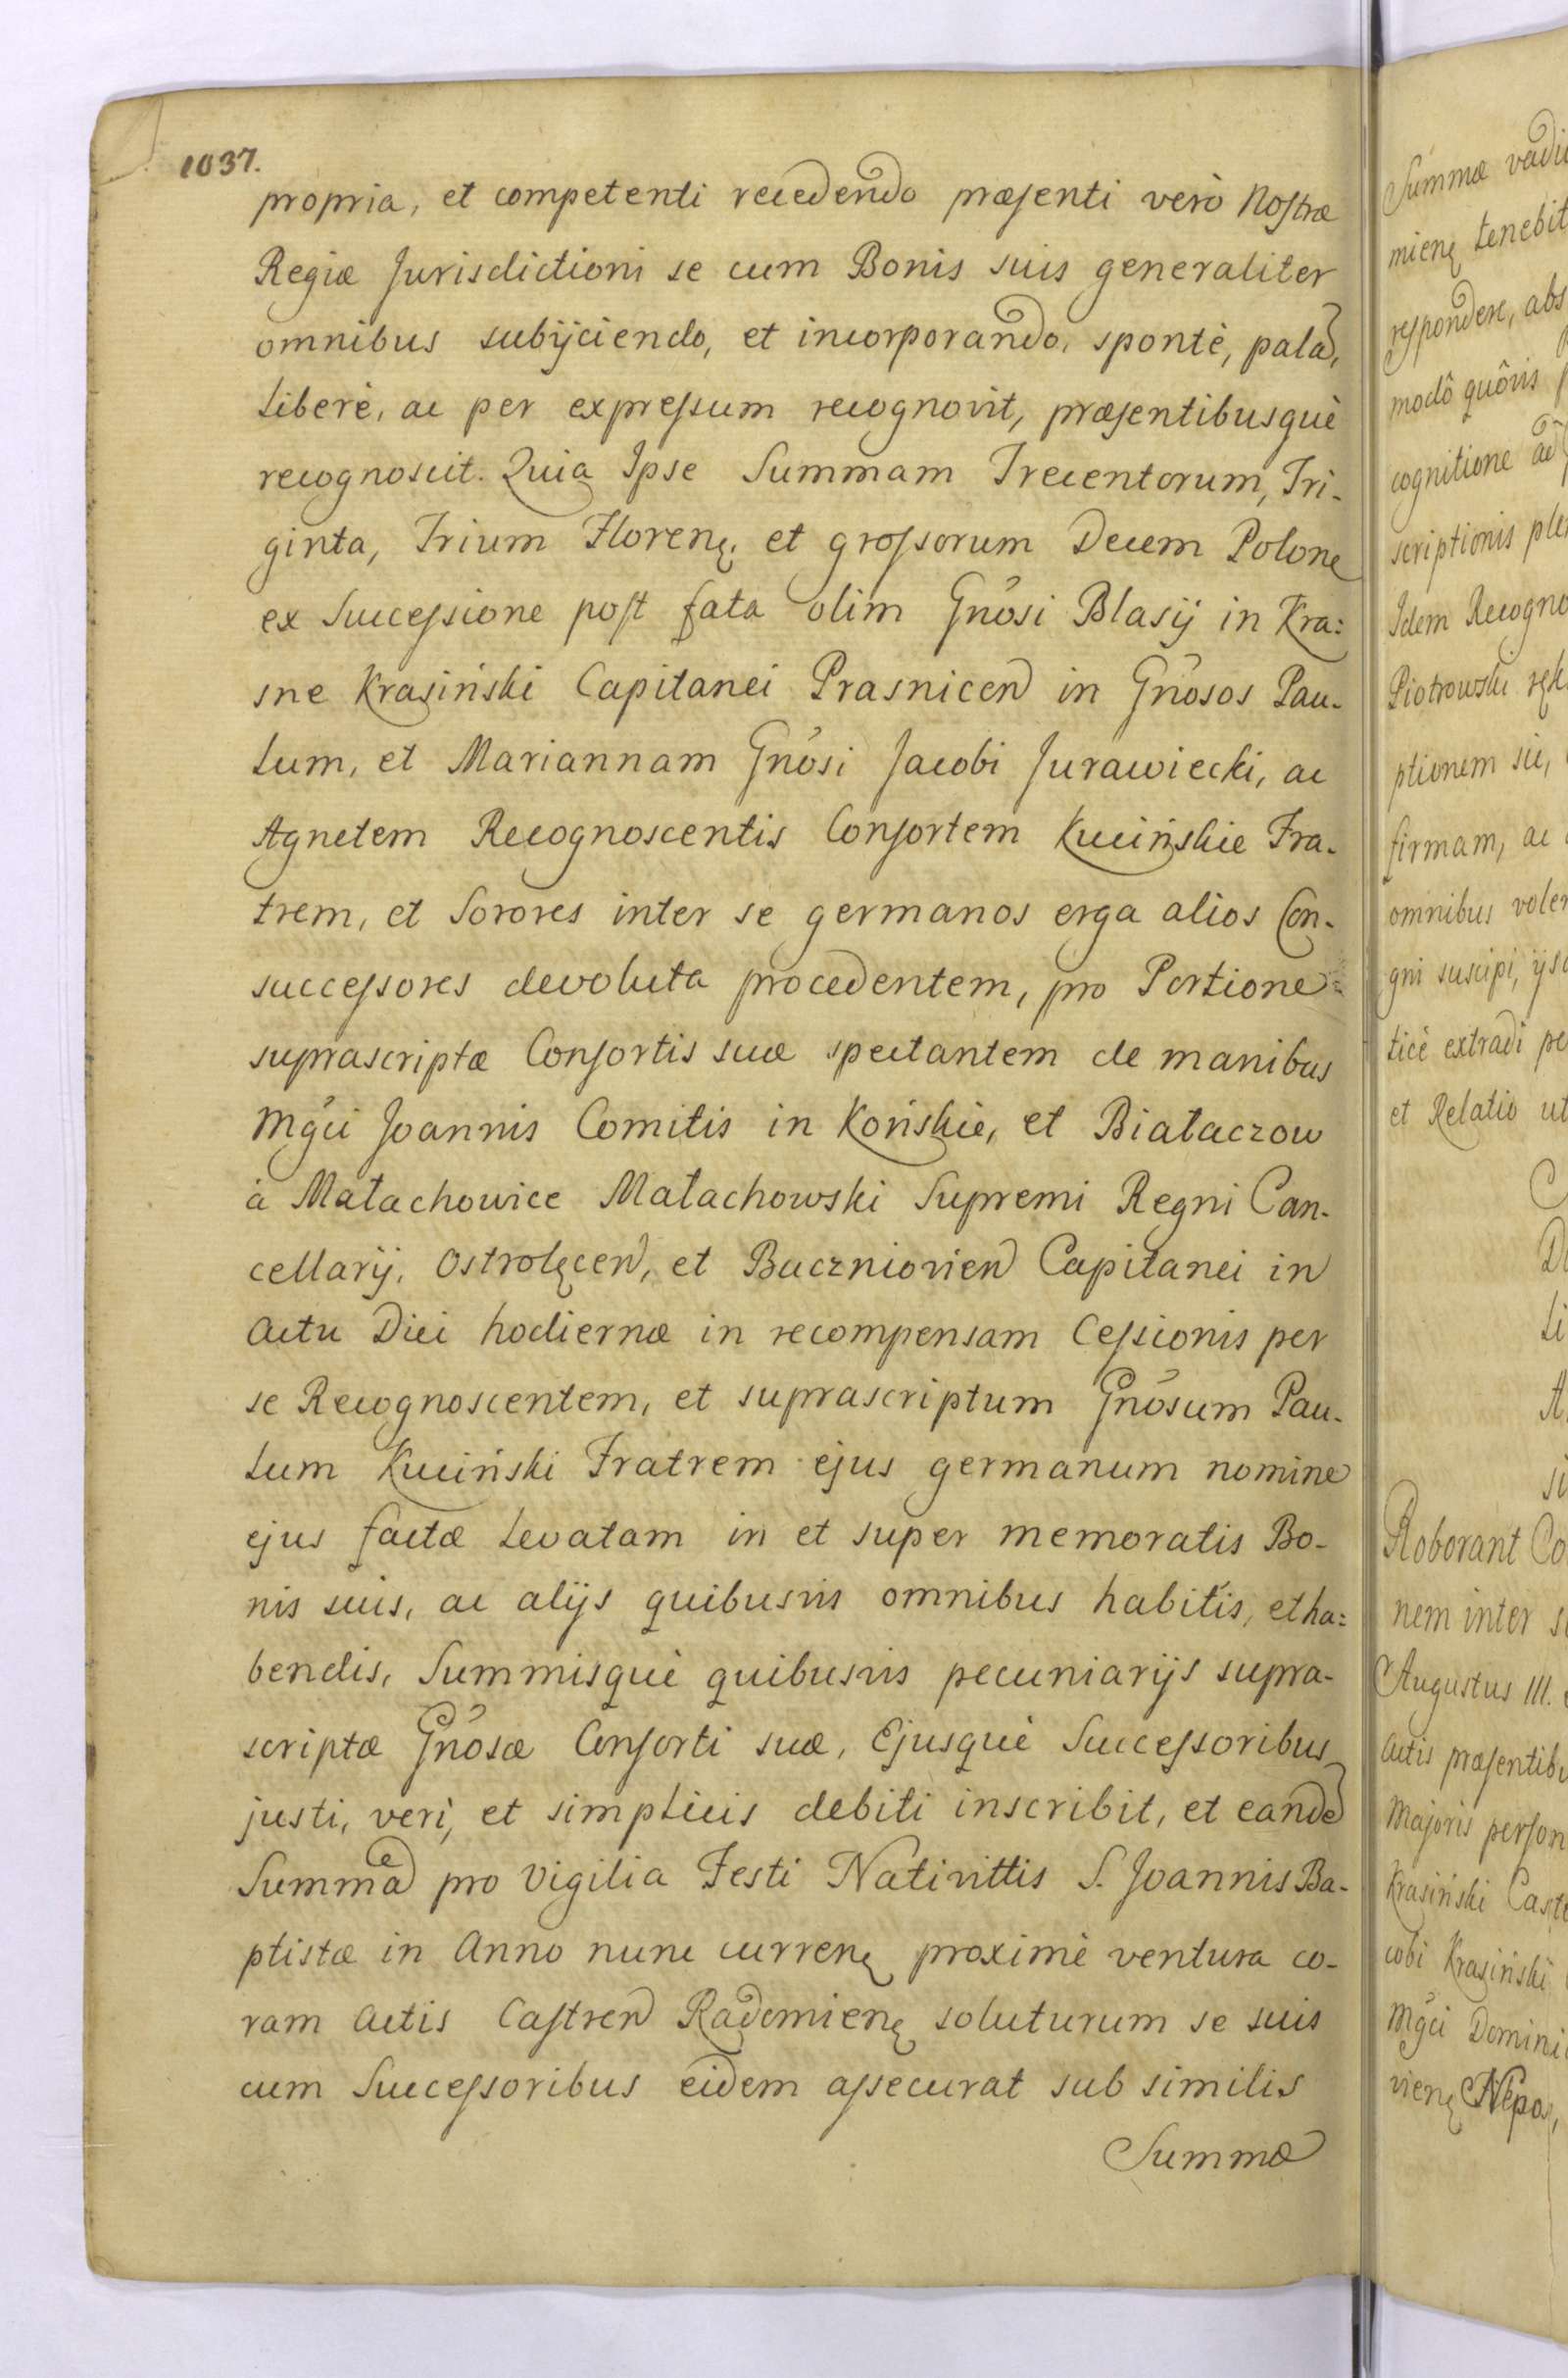 1037.
propria, et competenti recedendo præsenti verò Nostræ
Regiæ Jurisdictioni se cum Bonis suis generaliter
omnibus subijciendo, et incorporando, spontè, palã,
liberè, ac per expressum recognovit, præsentibusquè
recognoscit. Quia Ipse Summam Trecentorum, Tri-
ginta, Trium Florenę. et grossorum Decem Polonę
ex Successione post fata olim Gnősi Blasij in Kra:
sne Krasiński Capitanei Prasnicen in Gnősos Pau-
lum, et Mariannam Gnősi Jacobi Jurawiecki, ac
Agnetem Recognoscentis Consortem Kucińskie Fra-
trem, et Sorores inter se germanos erga alios Con-
successores devoluta procedentem, pro Portione
suprascriptæ Consortis suæ spectantem de manibus
Mgői Joannis Comitis in Końskie, et Białaczow
à Małachowice Małachowski Supremi Regni Can-
cellarij, Ostrołęcen, et Baczniovien Capitanei in
Actu Diei hodiernæ in recompensam Cessionis per
se Recognoscentem, et suprascriptum Gnősum Pau-
lum Kuciński Fratrem ejus germanum nomine
ejus factæ Levatam in et super memoratis Bo-
nis suis, ac alijs quibusvis omnibus habitis, et ha:
bendis, Summisquè quibusvis pecuniarijs supra-
scriptæ Gnősæ Consorti suæ, Ejusquè Successoribus
justi, veri, et simplicis debiti inscribit, et eandẽ
Summã pro Vigilia Festi Nativittis S. Joannis Ba-
ptistæ in Anno nunc currenę proximè ventura co-
ram Actis Castren Radomienę soluturum se suis
cum Successoribus eidem assecurat sub similis
Summæ
Summæ vadii
mienę tenebit
respondere, abs
modô quôvis
cognitione ac
scriptionis ple
Idem Recogno
Piotrowski ręk
ptionem sic,
firmam, ac
omnibus voler
gni suscipi, ijs
ticè extradi pe
et Relatio ut
C
D
Li
A
si
Roborant Co
nem inter s
Augustus III.
Actis præsentib
Majoris person
Krasiński Cast
cobi Krasiński
Mgői Domini
vienę Nepos,